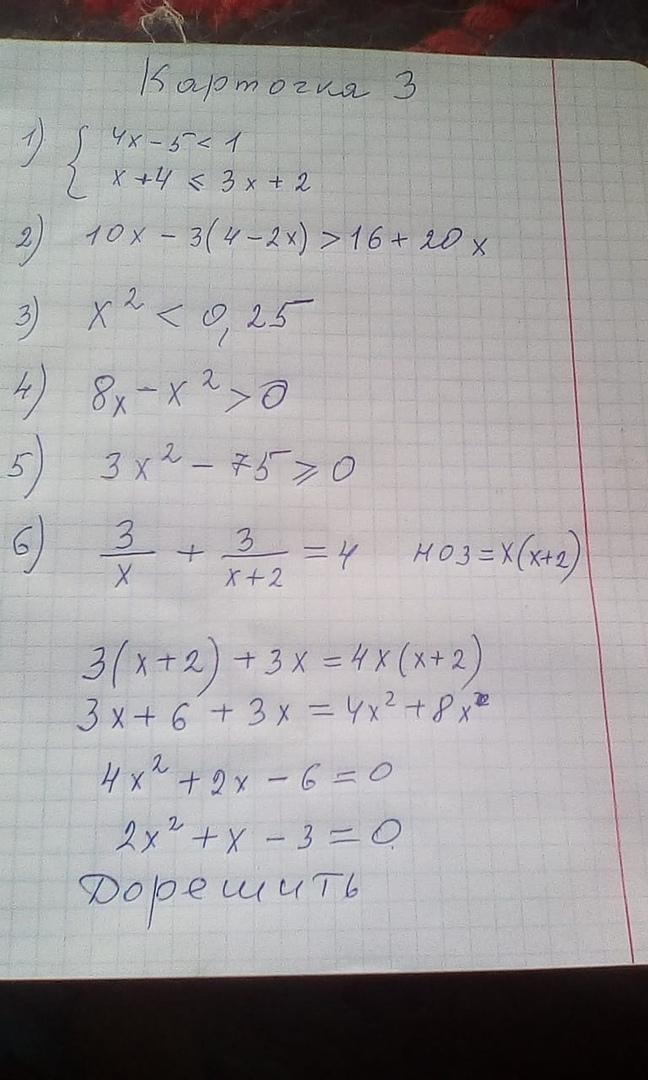 Карточка 3
1) { 4x - 5 < 1
x + 4 ⩽ 3x + 2
2) 10x - 3(4 - 2x) > 16 + 20x
3) x² < 0,25
4) 8x - x² > 0
5) 3x² - 75 ⩾ 0
6) 3/x + 3/(x+2) = 4 НОЗ = x(x+2)
3(x+2) + 3x = 4x(x+2)
3x + 6 + 3x = 4x² + 8x
4x² + 2x - 6 = 0
2x² + x - 3 = 0
Дорешить